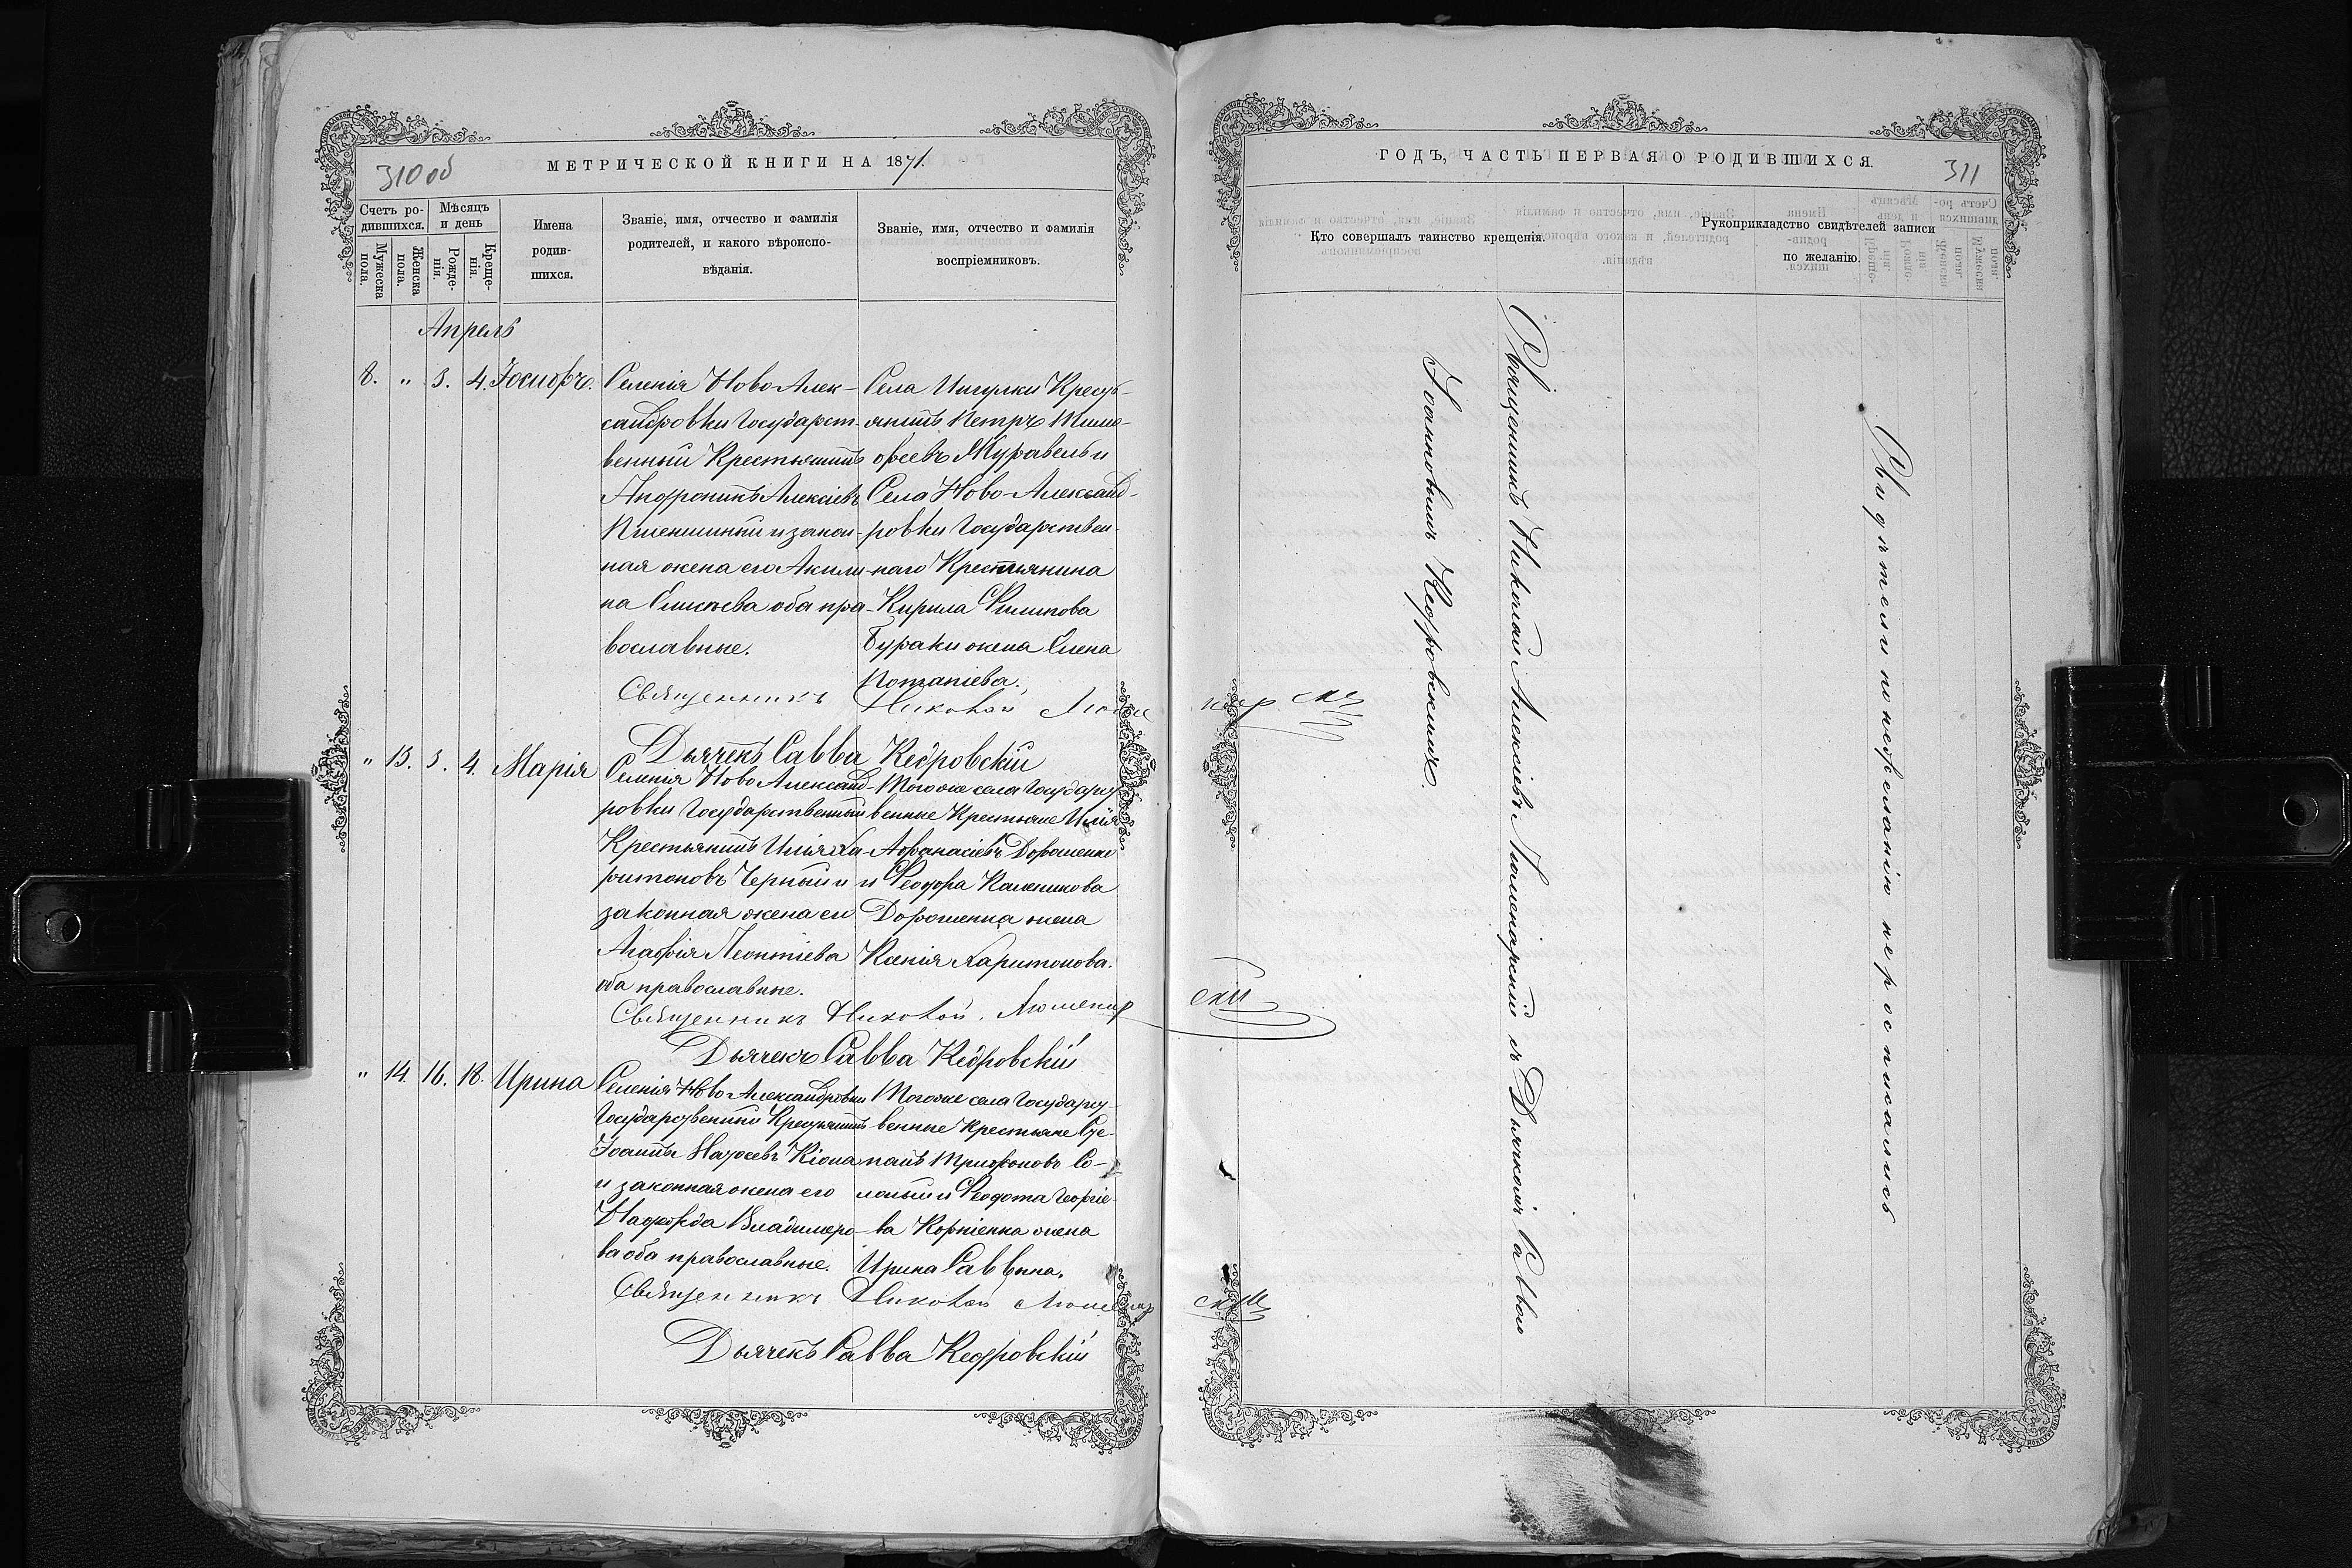 310 об
МЕТРИЧЕСКОЙ КНИГИ НА 1871.
Счетъ ро-
дившихся.
Мѣсяцъ
и день
Мужеска
пола.
Женска
пола.
Рожде-
нія.
Креще-
нія.
Имена
родив-
шихся.
Званіе, имя, отчество и фамилія
родителей, и какого вѣроиспо-
вѣданія.
Званіе, имя, отчество и фамилія
воспріемниковъ.
Апрель
8. " 3. 4. Іосифъ.
Селенія Ново Алек-
сандровки Государст-
венный Крестьянинъ
Андроникъ Алексіевъ
Пшеничный и закон-
ная жена его Акили-
на Елисѣева оба пра-
вославные.
Села Ичурки Кресть-
янинъ Петръ Тимо-
ѳеевъ Журавель и
Села Ново-Александ-
ровки Государствен-
наго Крестьянина
Кирила Филипова
Бураки жена Елена
Потапіева.
Священникъ Николай
Дьячекъ Савва Кедровскій
" 13. 3. 4. Марія
Селенія Ново Александ-
ровки Государственный
Крестьянинъ Илія Ха-
ритоновъ Черный и
законная жена его
Агафія Леонтіева
оба православные.
Того же села Государст-
венные Крестьяне Илія
Афанасіевъ Дорошенко
и Ѳеодора Каленикова
Дорошенка жена
Ксенія Харитонова.
Священникъ Николай Люменарскій
Дьячекъ Савва Кедровскій
" 14. 16. 18. Ирина
Селенія Ново Александровки
Государственный Крестьянинъ
Іоаннъ Кіона
и законная жена его
Надежда Владимеро-
ва оба православные.
Того же села Государст-
венные Крестьяне Сте-
панъ Трифоновъ Со-
и Ѳеодота Георгіе-
ва Корніенка жена
Ирина Саввина.
Священникъ Николай Люменарскій
Дьячекъ Савва Кедровскій
ГОДЪ, ЧАСТЬ ПЕРВАЯ О РОДИВШИХСЯ.
311
Кто совершалъ таинство крещенія.
Рукоприкладство свидѣтелей записи
по желанію.
Священникъ Николай Алексіевъ Люменарскій съ Дьячкомъ Саввою
Іоанновымъ Кедровскимъ.
Свидѣтели по нежеланію не росписались